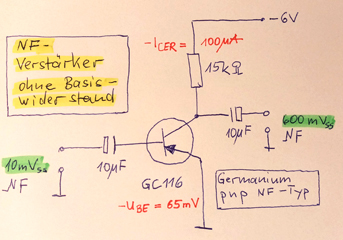 NF-
Verstärker
ohne Basis-
widerstand
-6V
-ICER = 100µA
15kΩ
10µF
600mVss
NF
10mVss
NF
10µF
GC116
-UBE = 65mV
Germanium
pnp NF-Typ